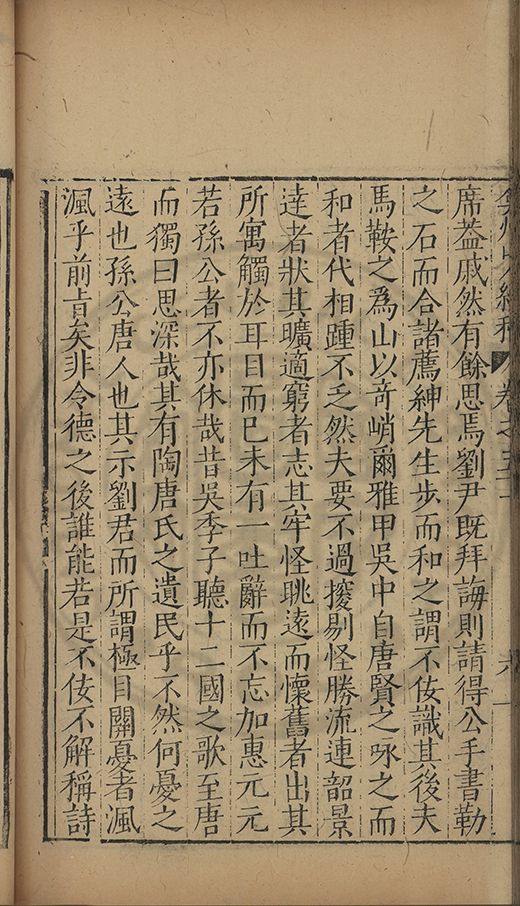 弇州山人續稿 卷之五十 六
席葢戚然有餘思焉劉尹既拜誨則請得公手書勒
之石而合諸薦紳先生步而和之謂不佞識其後夫
馬鞍之爲山以竒峭爾雅甲吳中自唐賢之咏之而
和者代相踵不乏然夫要不過擾剔怪勝流連韶景
達者狀其曠適窮者志其牢怪眺遠而懷舊者出其
所寓觸於耳目而已未有一吐辭而不忘加惠元元
若孫公者不亦休哉昔吳季子聽十二國之歌至唐
而獨曰思深哉其有陶唐氏之遺民乎不然何憂之
遠也孫公唐人也其示劉君而所謂極目關憂者渢
渢乎前旨矣非令德之後誰能若是不佞不解稱詩